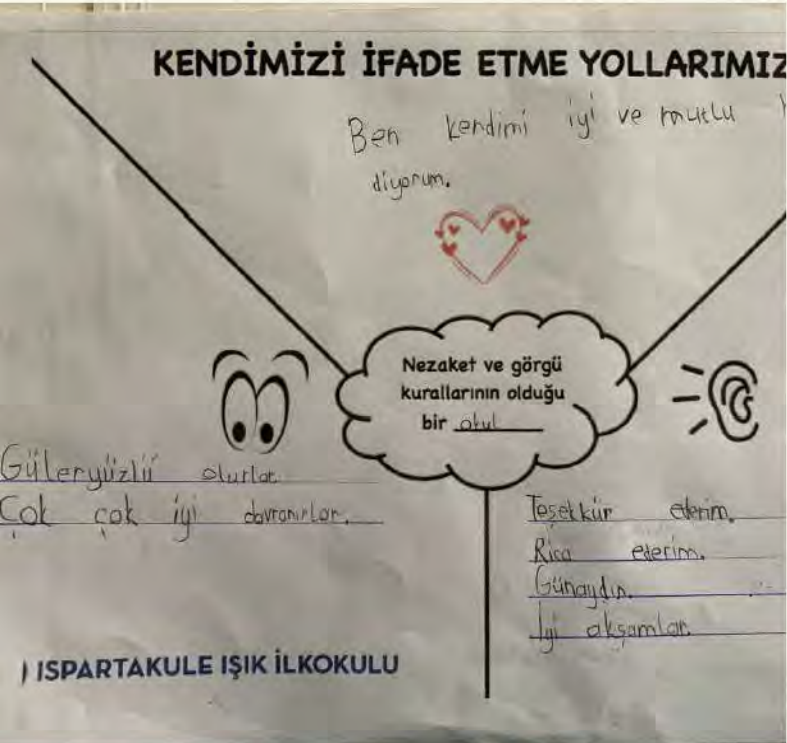 KENDİMİZİ İFADE ETME YOLLARIMIZ
Ben kendimi iyi ve mutlu
diyorum.
Nezaket ve görgü
kurallarının olduğu
bir okul
Güleryüzlü olurlar.
Çok çok iyi davranırlar.
Teşekkür ederim.
Rica ederim.
Günaydın.
İyi akşamlar.
ISPARTAKULE IŞIK İLKOKULU